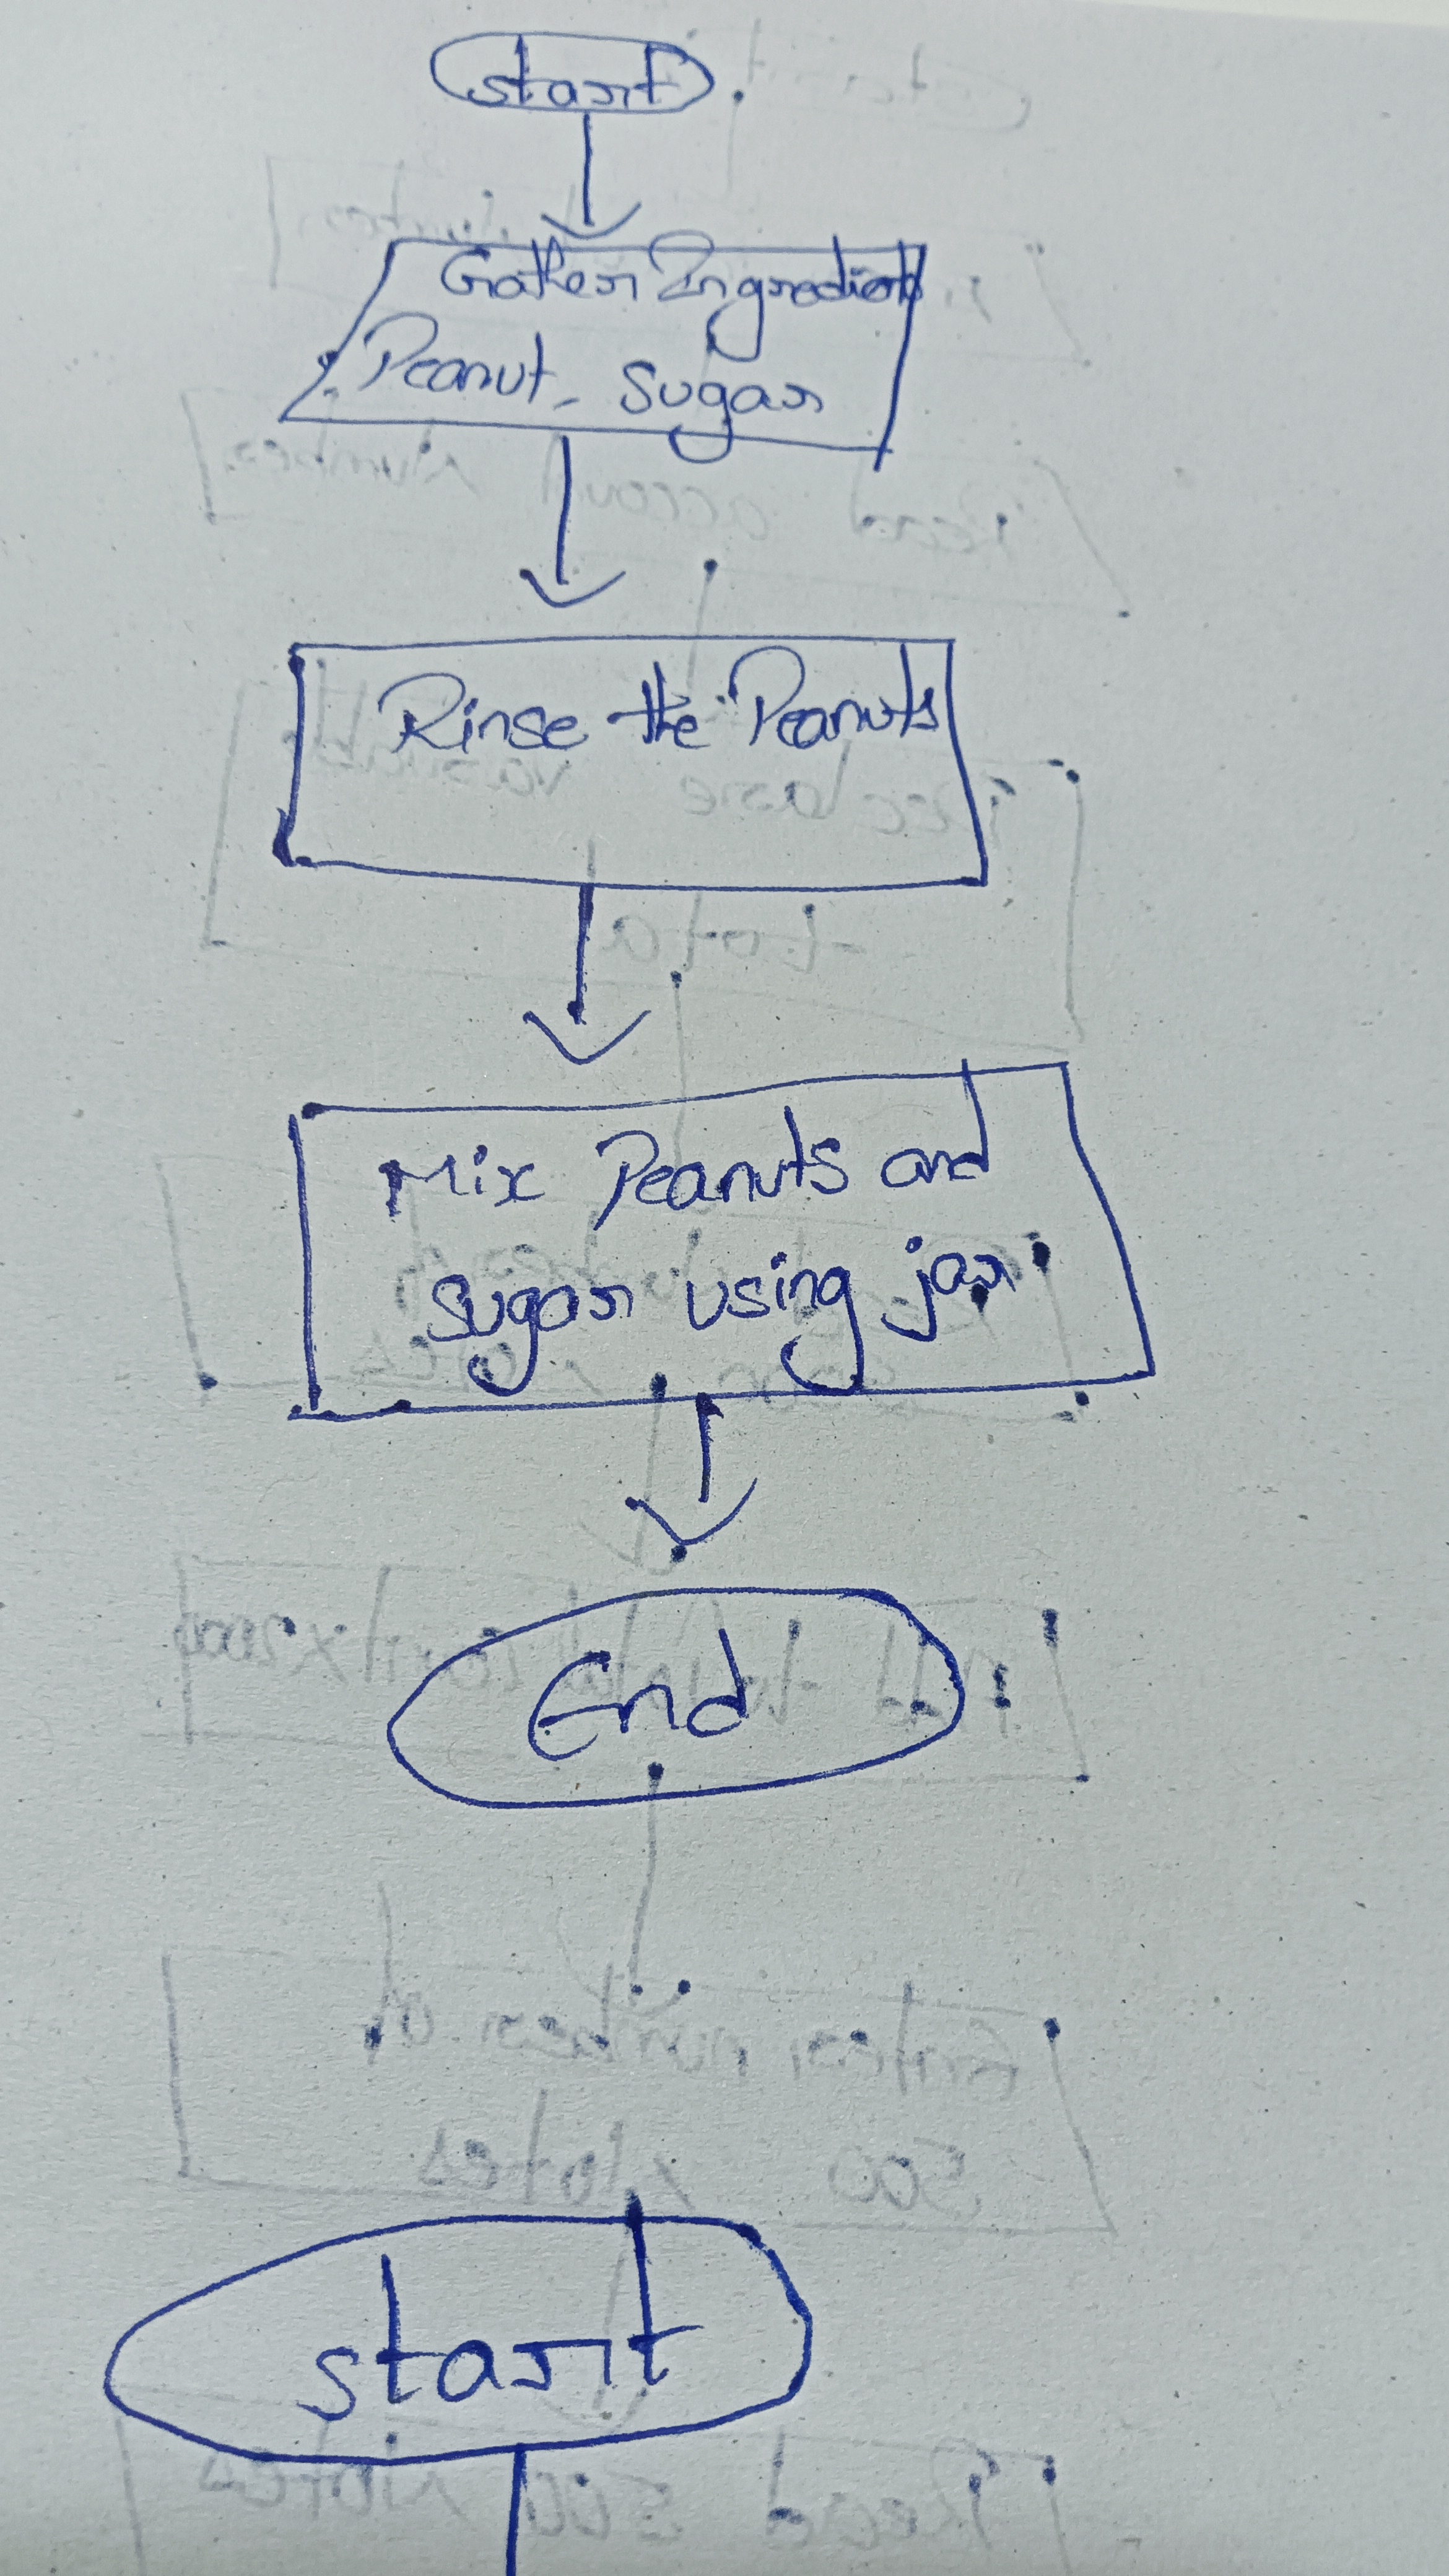 start
Gather Ingredients
Peanut, Sugar
Rinse the Peanuts
Mix Peanuts and
sugar using jar
End
start